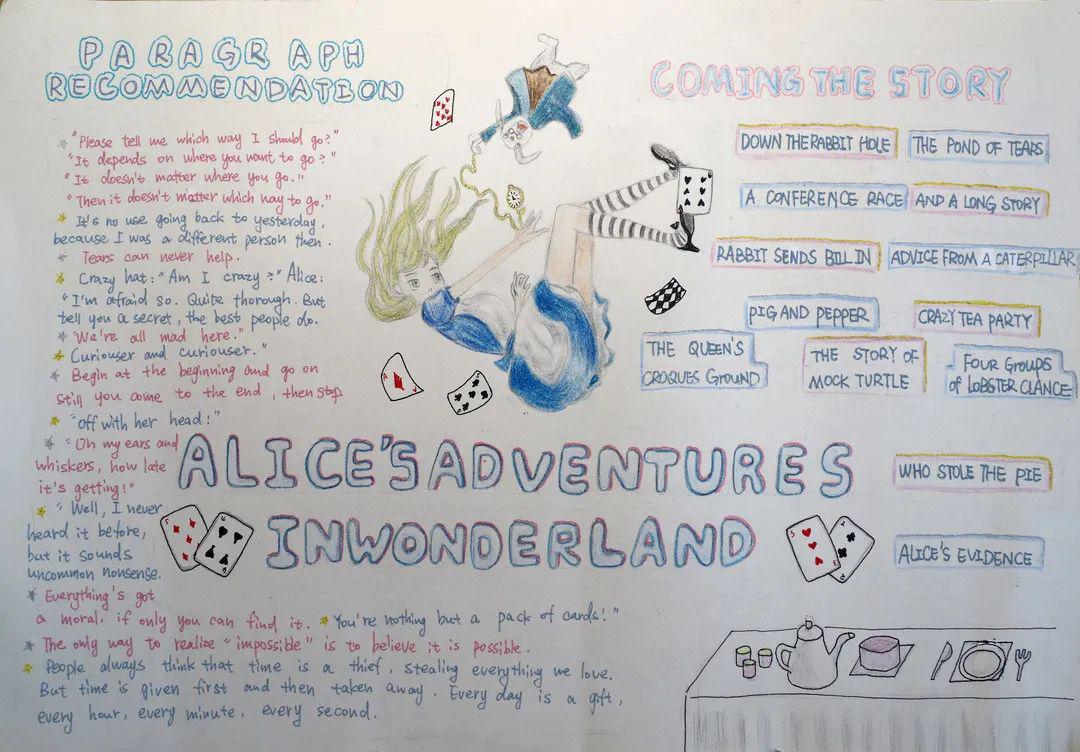 PARAGRAPH
RECOMMENDATION
"Please tell me which way I should go?"
"It depends on where you want to go?"
"It doesn't matter where you go."
"Then it doesn't matter which way to go."
It's no use going back to yesterday,
because I was a different person then.
Tears can never help.
Crazy hat: "Am I crazy?" Alice:
"I'm afraid so. Quite thorough. But
tell you a secret, the best people do.
"We're all mad here."
Curiouser and curiouser."
Begin at the beginning and go on
still you come to the end, then stop.
"off with her head!"
"Oh my ears and
whiskers, how late
it's getting!"
"Well, I never
heard it before,
but it sounds
uncommon nonsense.
Everything's got
a moral, if only you can find it.
"You're nothing but a pack of cards!"
The only way to realize "impossible" is to believe it is possible.
People always think that time is a thief, stealing everything we love.
But time is given first and then taken away. Every day is a gift,
every hour, every minute, every second.
ALICE'S ADVENTURES
IN WONDERLAND
COMING THE STORY
DOWN THE RABBIT HOLE
THE POND OF TEARS
A CONFERENCE RACE
AND A LONG STORY
RABBIT SENDS BILL IN
ADVICE FROM A CATERPILLAR
PIG AND PEPPER
CRAZY TEA PARTY
THE QUEEN'S
CROQUES GROUND
THE STORY OF
MOCK TURTLE
FOUR GROUPS
of LOBSTER CLANCE
WHO STOLE THE PIE
ALICE'S EVIDENCE